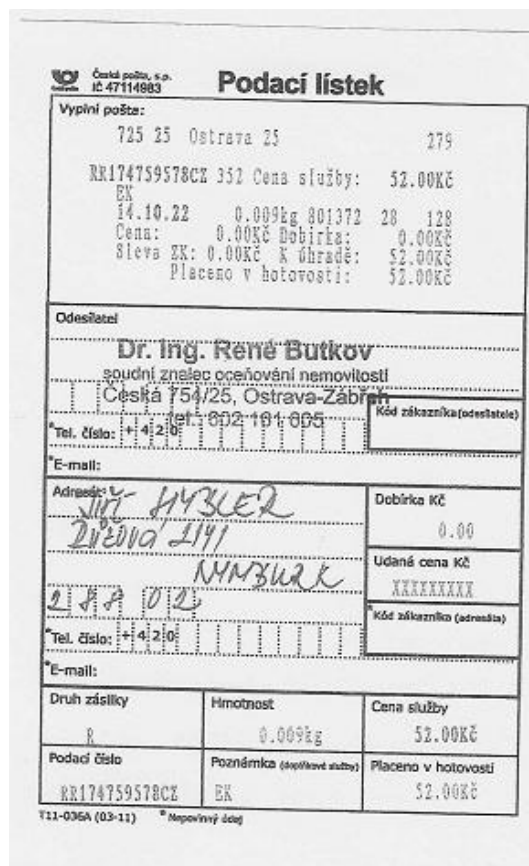 Česká pošta, s.p.
IČ 47114983
Podací lístek
Vyplní pošta:
725 25 Ostrava 25 279
RR174759578CZ 352 Cena služby: 52.00Kč
EK
14.10.22 0.009kg 801372 28 128
Cena: 0.00Kč Dobírka: 0.00Kč
Sleva ZK: 0.00Kč K úhradě: 52.00Kč
Placeno v hotovosti: 52.00Kč
Odesílatel
Dr. Ing. René Butkov
soudní znalec oceňování nemovitostí
Česká 754/25, Ostrava-Zábřeh
tel.: 602 161 605
Kód zákazníka (odesílatele)
*Tel. číslo: +420
*E-mail:
Adresát:
Jiří HYBLER
2141
NYMBURK
288 02
Dobírka Kč
0.00
Udaná cena Kč
XXXXXXXXX
*Kód zákazníka (adresáta)
*Tel. číslo: +420
*E-mail:
Druh zásilky Hmotnost Cena služby
R 0.009kg 52.00Kč
Podací číslo Poznámka (doplňkové služby) Placeno v hotovosti
RR174759578CZ EK 52.00Kč
T11-036A (03-11) * Nepovinný údaj